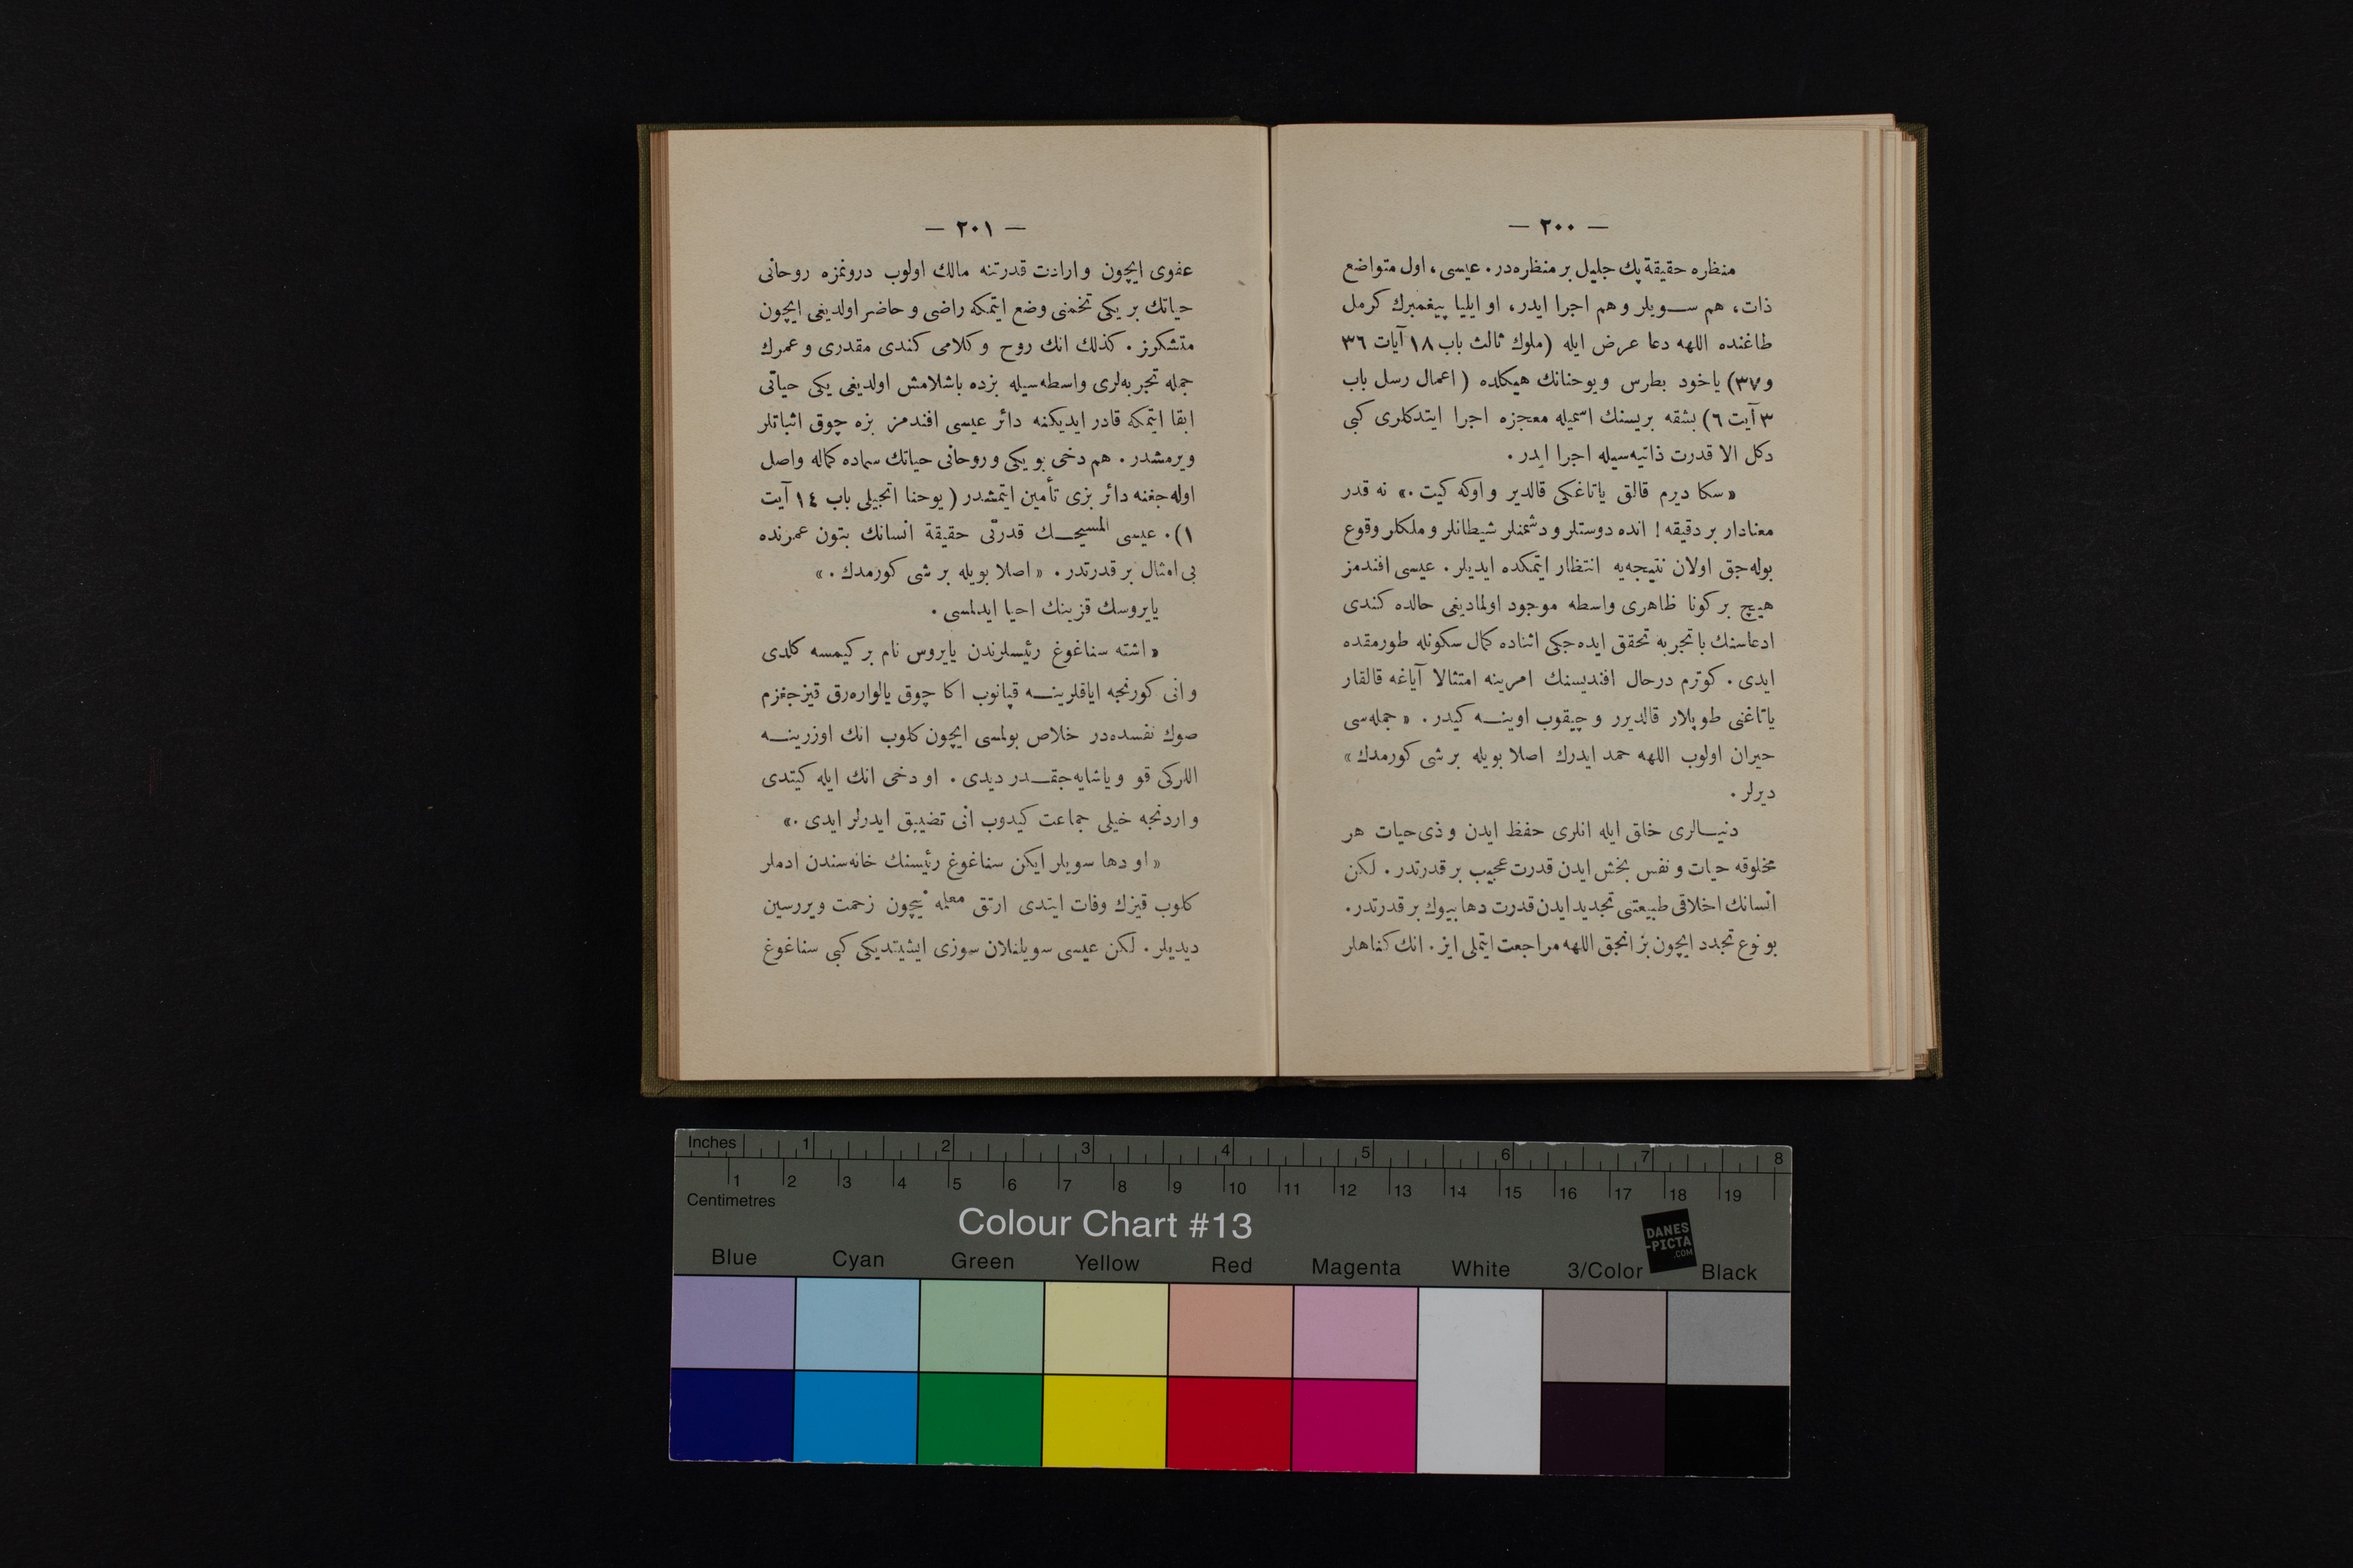 — ٢٠٠ —
منظره حقيقة پك جليل بر منظره‌در. عيسى، اول متواضع
ذات، هم ســويلر و هم اجرا ايدر، او ايليا پيغمبرك كرمل
طاغنده اللهه دعا عرض ايله (ملوك ثالث باب ١٨ آيات ٣٦
و ٣٧) ياخود بطرس و يوحنانك هيكلده (اعمال رسل باب
٣ آيت ٦) بشقه بريسنك اسميله معجزه اجرا ايتدكلرى كبى
دكل الا قدرت ذاتيه‌سيله اجرا ايدر.
«سكا ديرم قالق ياتاغكى قالدير و اوكه كيت.» نه قدر
معنادار بر دقيقه! انده دوستلر و دشمنلر شيطانلر و ملكلر وقوع
بوله‌جق اولان نتيجه‌يه انتظار ايتمكده ايديلر. عيسى افندمز
هيچ بر كونا ظاهرى واسطه موجود اولماديغى حالده كندى
ادعاسنك باتجربه تحقق ايده‌جكى اثناده كمال سكونله طورمقده
ايدى. كوترم درحال افنديسنك امرينه امتثالا آياغه قالقار
ياتاغنى طوپلار قالديرر و چيقوب اوينــه كيدر. «جمله‌سى
حيران اولوب اللهه حمد ايدرك اصلا بويله بر شى كورمدك»
ديرلر.
دنيــالرى خلق ايله انلرى حفظ ايدن و ذى‌حيات هر
مخلوقه حيات و نفس بخش ايدن قدرت عجيب بر قدرتدر. لكن
انسانك اخلاقى طبيعتنى تجديد ايدن قدرت دها بيوك بر قدرتدر.
بو نوع تجدد ايچون بز انجق اللهه مراجعت ايتملى ايز. انك كناهلر
— ٢٠١ —
عفوى ايچون و ارادت قدرتنه مالك اولوب درونمزه روحانى
حياتك بر يكى تخمنى وضع ايتمكه راضى و حاضر اولديغى ايچون
متشكرز. كذلك انك روح و كلامى كندى مقدرى و عمرك
جمله تجربه‌لرى واسطه‌سيله بزده باشلامش اولديغى يكى حياتى
ابقا ايتمكه قادر ايديكنه دائر عيسى افندمز بزه چوق اثباتلر
ويرمشدر. هم دخى بو يكى و روحانى حياتك سماده كماله واصل
اوله‌جغنه دائر بزى تأمين ايتمشدر (يوحنا انجيلى باب ١٤ آيت
١). عيسى المسيحــك قدرتى حقيقة انسانك بتون عمرنده
بى امثال بر قدرتدر. «اصلا بويله بر شى كورمدك.»
يايروسك قزينك احيا ايدلمسى.
«اشته سناغوغ رئيسلرندن يايروس نام بر كيمسه كلدى
و انى كورنجه اياقلرينــه قپانوب اكا چوق يالواره‌رق قيزجغزم
صوك نفسده‌در خلاص بولمسى ايچون كلوب انك اوزرينــه
اللركى قو و ياشايه‌جقــدر ديدى. او دخى انك ايله كيتدى
و اردنجه خيلى جماعت كيدوب انى تضييق ايدرلر ايدى.»
«او دها سويلر ايكن سناغوغ رئيسنك خانه‌سندن ادملر
كلوب قيزك وفات ايتدى ارتق معلمه نيچون زحمت ويررسين
ديديلر. لكن عيسى سويلنلان سوزى ايشيتديكى كبى سناغوغ
Inches 1 2 3 4 5 6 7 8
1 2 3 4 5 6 7 8 9 10 11 12 13 14 15 16 17 18 19
Centimetres
Colour Chart #13
DANES
-PICTA
.COM
Blue Cyan Green Yellow Red Magenta White 3/Color Black